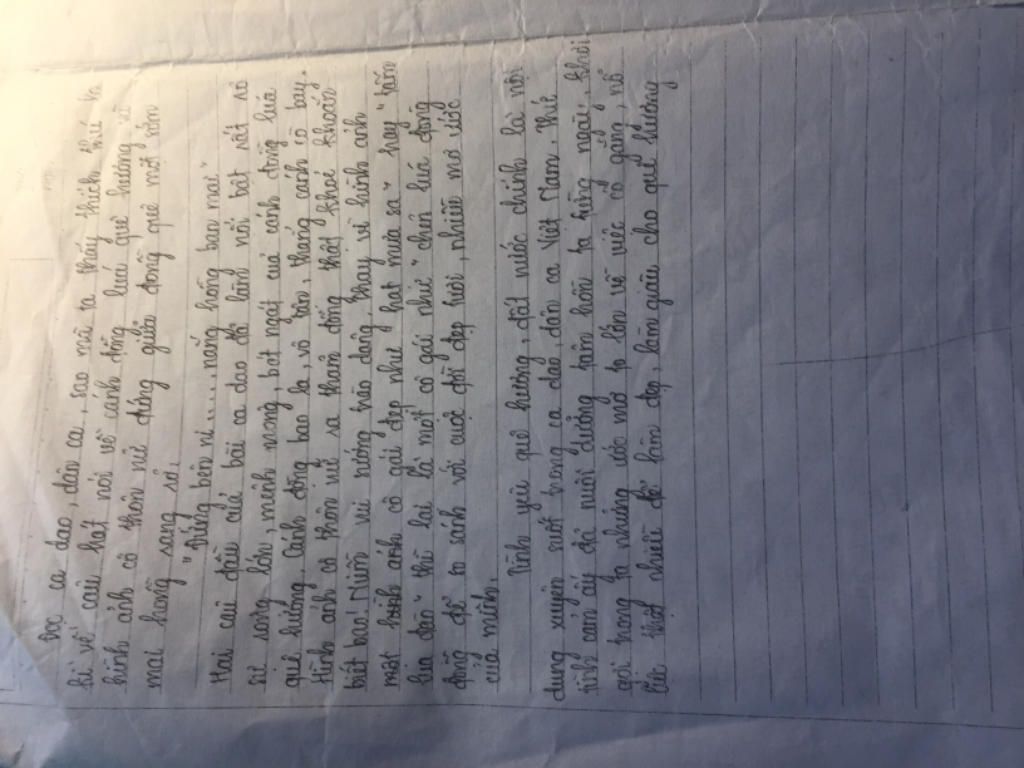 Đọc ca dao, dân ca, sao mà ta thấy thích thú kì
lạ về câu hát nói về cánh đồng lúa quê hương và
hình ảnh cô thôn nữ đứng giữa đồng quê một sớm
mai hồng sang sớ.
"Đứng bên ni...., nắng hồng ban mai"
Hai câu đầu của bài ca dao đã làm nổi bật nét sô
bi song lớn, mênh mông, bát ngát của cánh đồng lúa
quê hương. Cánh đồng bao la, vô tận, thẳng cánh cò bay.
Hình ảnh cô thôn nữ ra thăm đồng thật khoẻ khoắn
biết bao! Niềm vui sướng trào dâng. Thay vì hình ảnh
một cô gái đẹp như "hạt mưa sa" hay "tấm
lụa đào" thì lại là một cô gái như "chẽn lúa đòng
đòng" để so sánh với cuộc đời đẹp tươi, nhiều mơ ước
của mình.
Tình yêu quê hương, đất nước chính là nội
dung xuyên suốt trong ca dao, dân ca Việt Nam. Thứ
tình cảm ấy đã nuôi dưỡng tâm hồn ta hằng ngày, khơi
gợi trong ta những ước mơ to lớn về việc cố gắng, nỗ
lực thật nhiều để làm đẹp, làm giàu cho quê hương